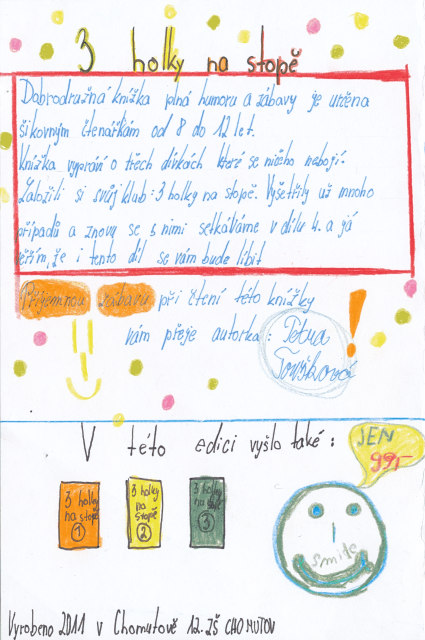 3 holky na stopě
Dobrodružná knížka plná humoru a zábavy je určena
šikovným čtenářkám od 8 do 12 let.
Knížka vypráví o třech dívkách které se ničeho nebojí.
Založili si svůj klub: 3 holky na stopě. Vyšetřily už mnoho
případů a znovu se s nimi setkáváme v dílu 4. a já
věřím, že i tento díl se vám bude líbit
Příjemnou zábavu při čtení této knížky
vám přeje autorka: Petra
V této edici vyšlo také:
JEN
99,-
3 holky na stopě 1
3 holky na stopě 2
3 holky na stopě 3
smile
Vyrobeno 2011 v Chomutově 12. ZŠ CHOMUTOV